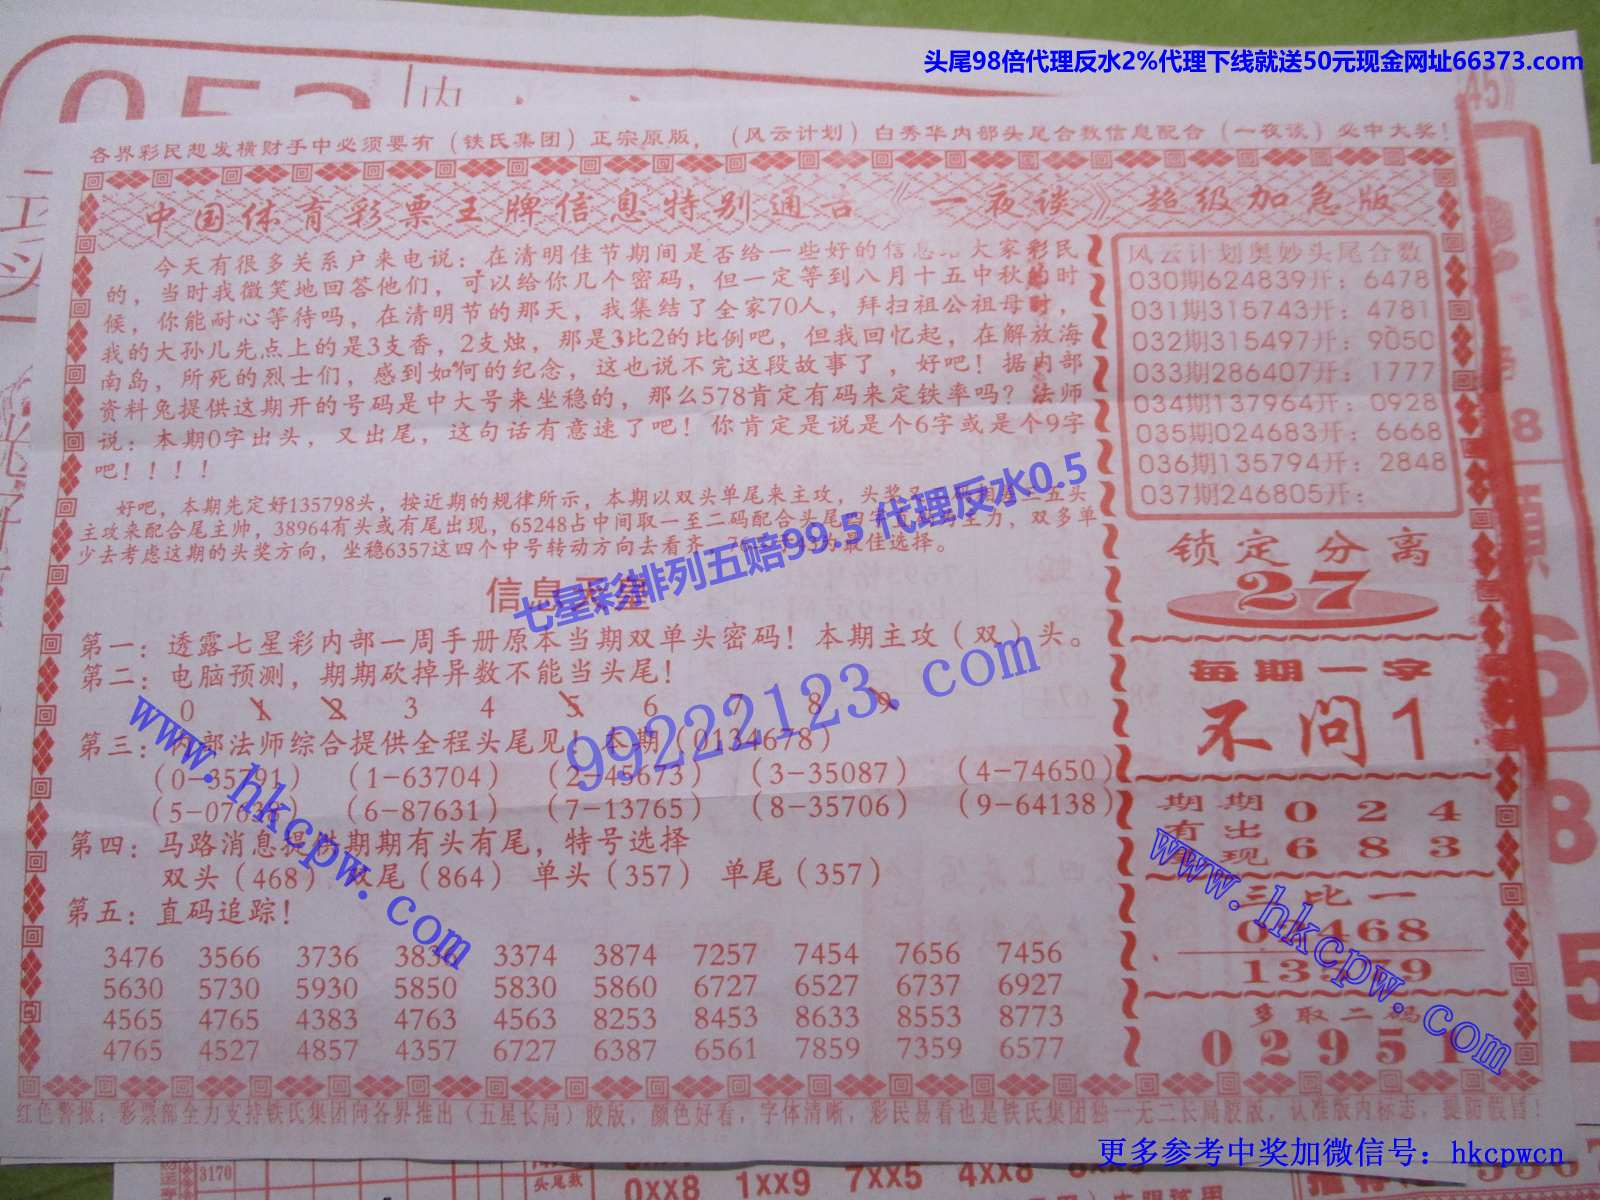 头尾98倍代理反水2%代理下线就送50元现金网址66373.com
各界彩民想发横财手中必须要有（铁氏集团）正宗原版，（风云计划）白秀华内部头尾合数信息配合（一夜谈）必中大奖！
中国体育彩票王牌信息特别通告《一夜谈》超级加急版
今天有很多关系户来电说：在清明佳节期间是否给一些好的信息 大家彩民
的，当时我微笑地回答他们，可以给你几个密码，但一定等到八月十五中秋的时
候，你能耐心等待吗，在清明节的那天，我集结了全家70人，拜扫祖公祖母时，
我的大孙儿先点上的是3支香，2支烛，那是3比2的比例吧，但我回忆起，在解放海
南岛，所死的烈士们，感到如何的纪念，这也说不完这段故事了，好吧！据内部
资料兔提供这期开的号码是中大号来坐稳的，那么578肯定有码来定铁率吗？法师
说：本期0字出头，又出尾，这句话有意速了吧！你肯定是说是个6字或是个9字
吧！！！！
好吧，本期先定好135798头，按近期的规律所示，本期以双头单尾来主攻，头奖 五头
主攻来配合尾主帅，38964有头或有尾出现，65248占中间取一至二码配合头尾 主力，双多单
少去考虑这期的头奖方向，坐稳6357这四个中号转动方向去看齐， 为最佳选择。
信息天皇
第一：透露七星彩内部一周手册原本当期双单头密码！本期主攻（双）头。
第二：电脑预测，期期砍掉异数不能当头尾！
0 1 2 3 4 5 6 7 8 9
第三：内部法师综合提供全程头尾见！本期（0134678）
（0-35791）（1-63704）（2-45673）（3-35087）（4-74650）
（5-076 ）（6-87631）（7-13765）（8-35706）（9-64138）
第四：马路消息提供期期有头有尾，特号选择
双头（468）双尾（864）单头（357）单尾（357）
第五：直码追踪！
3476 3566 3736 383 3374 3874 7257 7454 7656 7456
5630 5730 5930 5850 5830 5860 6727 6527 6737 6927
4565 4765 4383 4763 4563 8253 8453 8633 8553 8773
4765 4527 4857 4357 6727 6387 6561 7859 7359 6577
风云计划奥妙头尾合数
030期624839开：6478
031期315743开：4781
032期315497开：9050
033期286407开：1777
034期137964开：0928
035期024683开：6668
036期135794开：2848
037期246805开：
锁定分离
27
每期一字
不问1
期期 0 2 4
有出
现 6 8 3
三比一
0 468
13 79
多取二码
02951
红色警报：彩票部全力支持铁氏集团向各界推出（五星长局）胶版，颜色好看，字体清晰，彩民易看也是铁氏集团独一无二长局胶版，认准版内标志，提防假冒！
七星彩排列五赔99.5 代理反水0.5
99222123.com
www.hkcpw.com
www.hkcpw.com
更多参考中奖加微信号：hkcpwcn
3170
头尾数
0xx8 1xx9 7xx5 4xx8